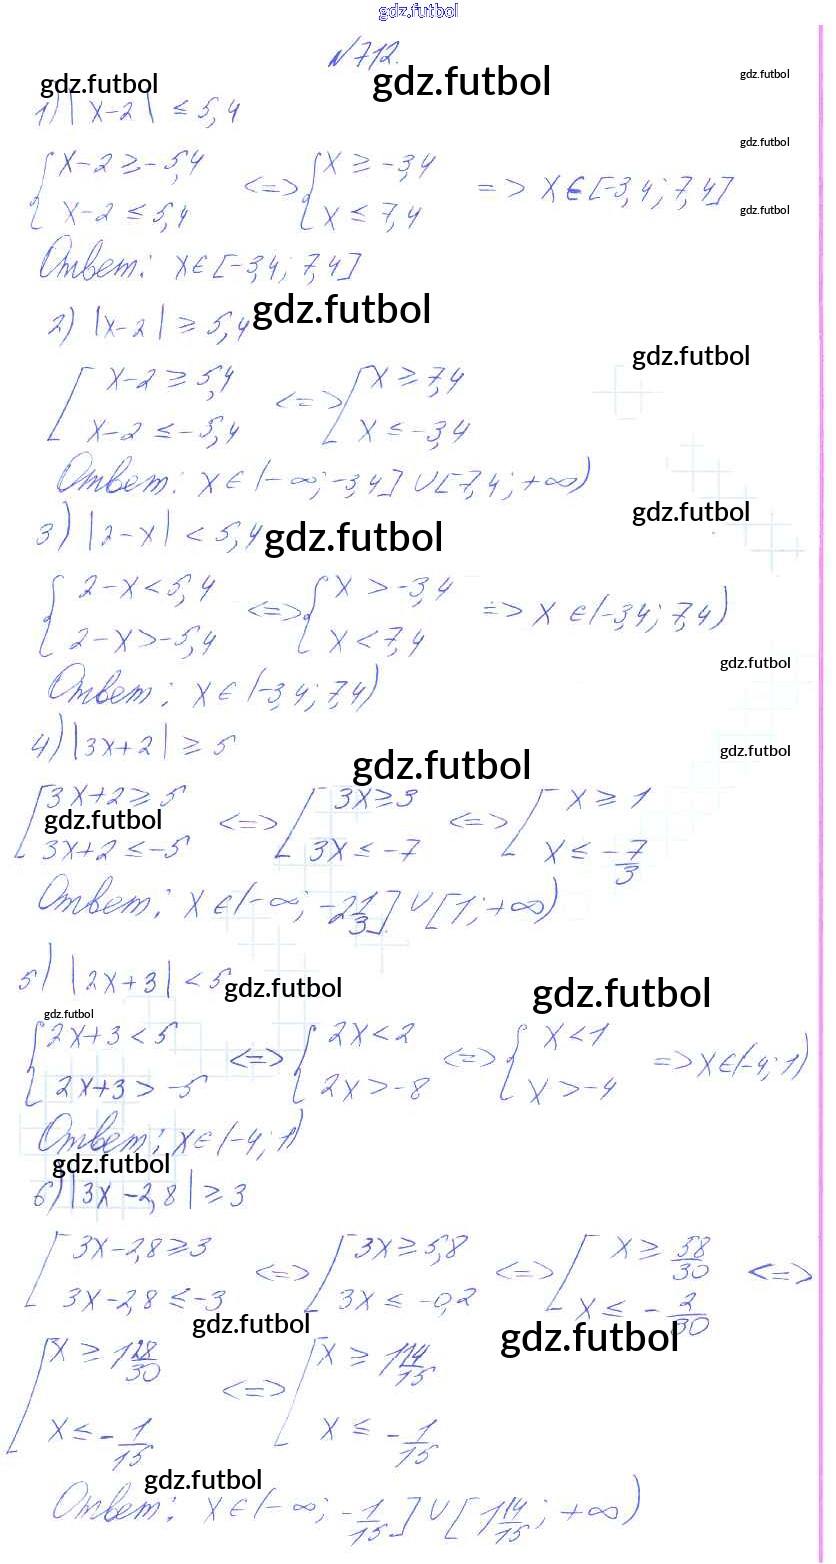 gdz.futbol
№712.
gdz.futbol gdz.futbol gdz.futbol
1) |x-2| ≤ 5,4
gdz.futbol
{ x-2 ≥ -5,4 <=> { x ≥ -3,4 => x ∈ [-3,4; 7,4]
{ x-2 ≤ 5,4 { x ≤ 7,4
gdz.futbol
Ответ: x ∈ [-3,4; 7,4]
2) |x-2| ≥ 5,4 gdz.futbol
gdz.futbol
[ x-2 ≥ 5,4 <=> [ x ≥ 7,4
[ x-2 ≤ -5,4 [ x ≤ -3,4
Ответ: x ∈ (-∞; -3,4] ∪ [7,4; +∞)
gdz.futbol
3) |2-x| < 5,4 gdz.futbol
{ 2-x < 5,4 <=> { x > -3,4 => x ∈ (-3,4; 7,4)
{ 2-x > -5,4 { x < 7,4
gdz.futbol
Ответ: x ∈ (-3,4; 7,4)
4) |3x+2| ≥ 5
gdz.futbol gdz.futbol
[ 3x+2 ≥ 5 <=> [ 3x ≥ 3 <=> [ x ≥ 1
gdz.futbol
[ 3x+2 ≤ -5 [ 3x ≤ -7 [ x ≤ -7/3
Ответ: x ∈ (-∞; -2 1/3] ∪ [1; +∞)
5) |2x+3| < 5 gdz.futbol gdz.futbol
gdz.futbol
{ 2x+3 < 5 <=> { 2x < 2 <=> { x < 1 => x ∈ (-4; 1)
{ 2x+3 > -5 { 2x > -8 { x > -4
Ответ: x ∈ (-4; 1)
gdz.futbol
6) |3x-2,8| ≥ 3
[ 3x-2,8 ≥ 3 <=> [ 3x ≥ 5,8 <=> [ x ≥ 58/30 <=>
[ 3x-2,8 ≤ -3 [ 3x ≤ -0,2 [ x ≤ -2/30
gdz.futbol gdz.futbol
[ x ≥ 1 28/30 <=> [ x ≥ 1 14/15
[ x ≤ -1/15 [ x ≤ -1/15
gdz.futbol
Ответ: x ∈ (-∞; -1/15] ∪ [1 14/15; +∞)